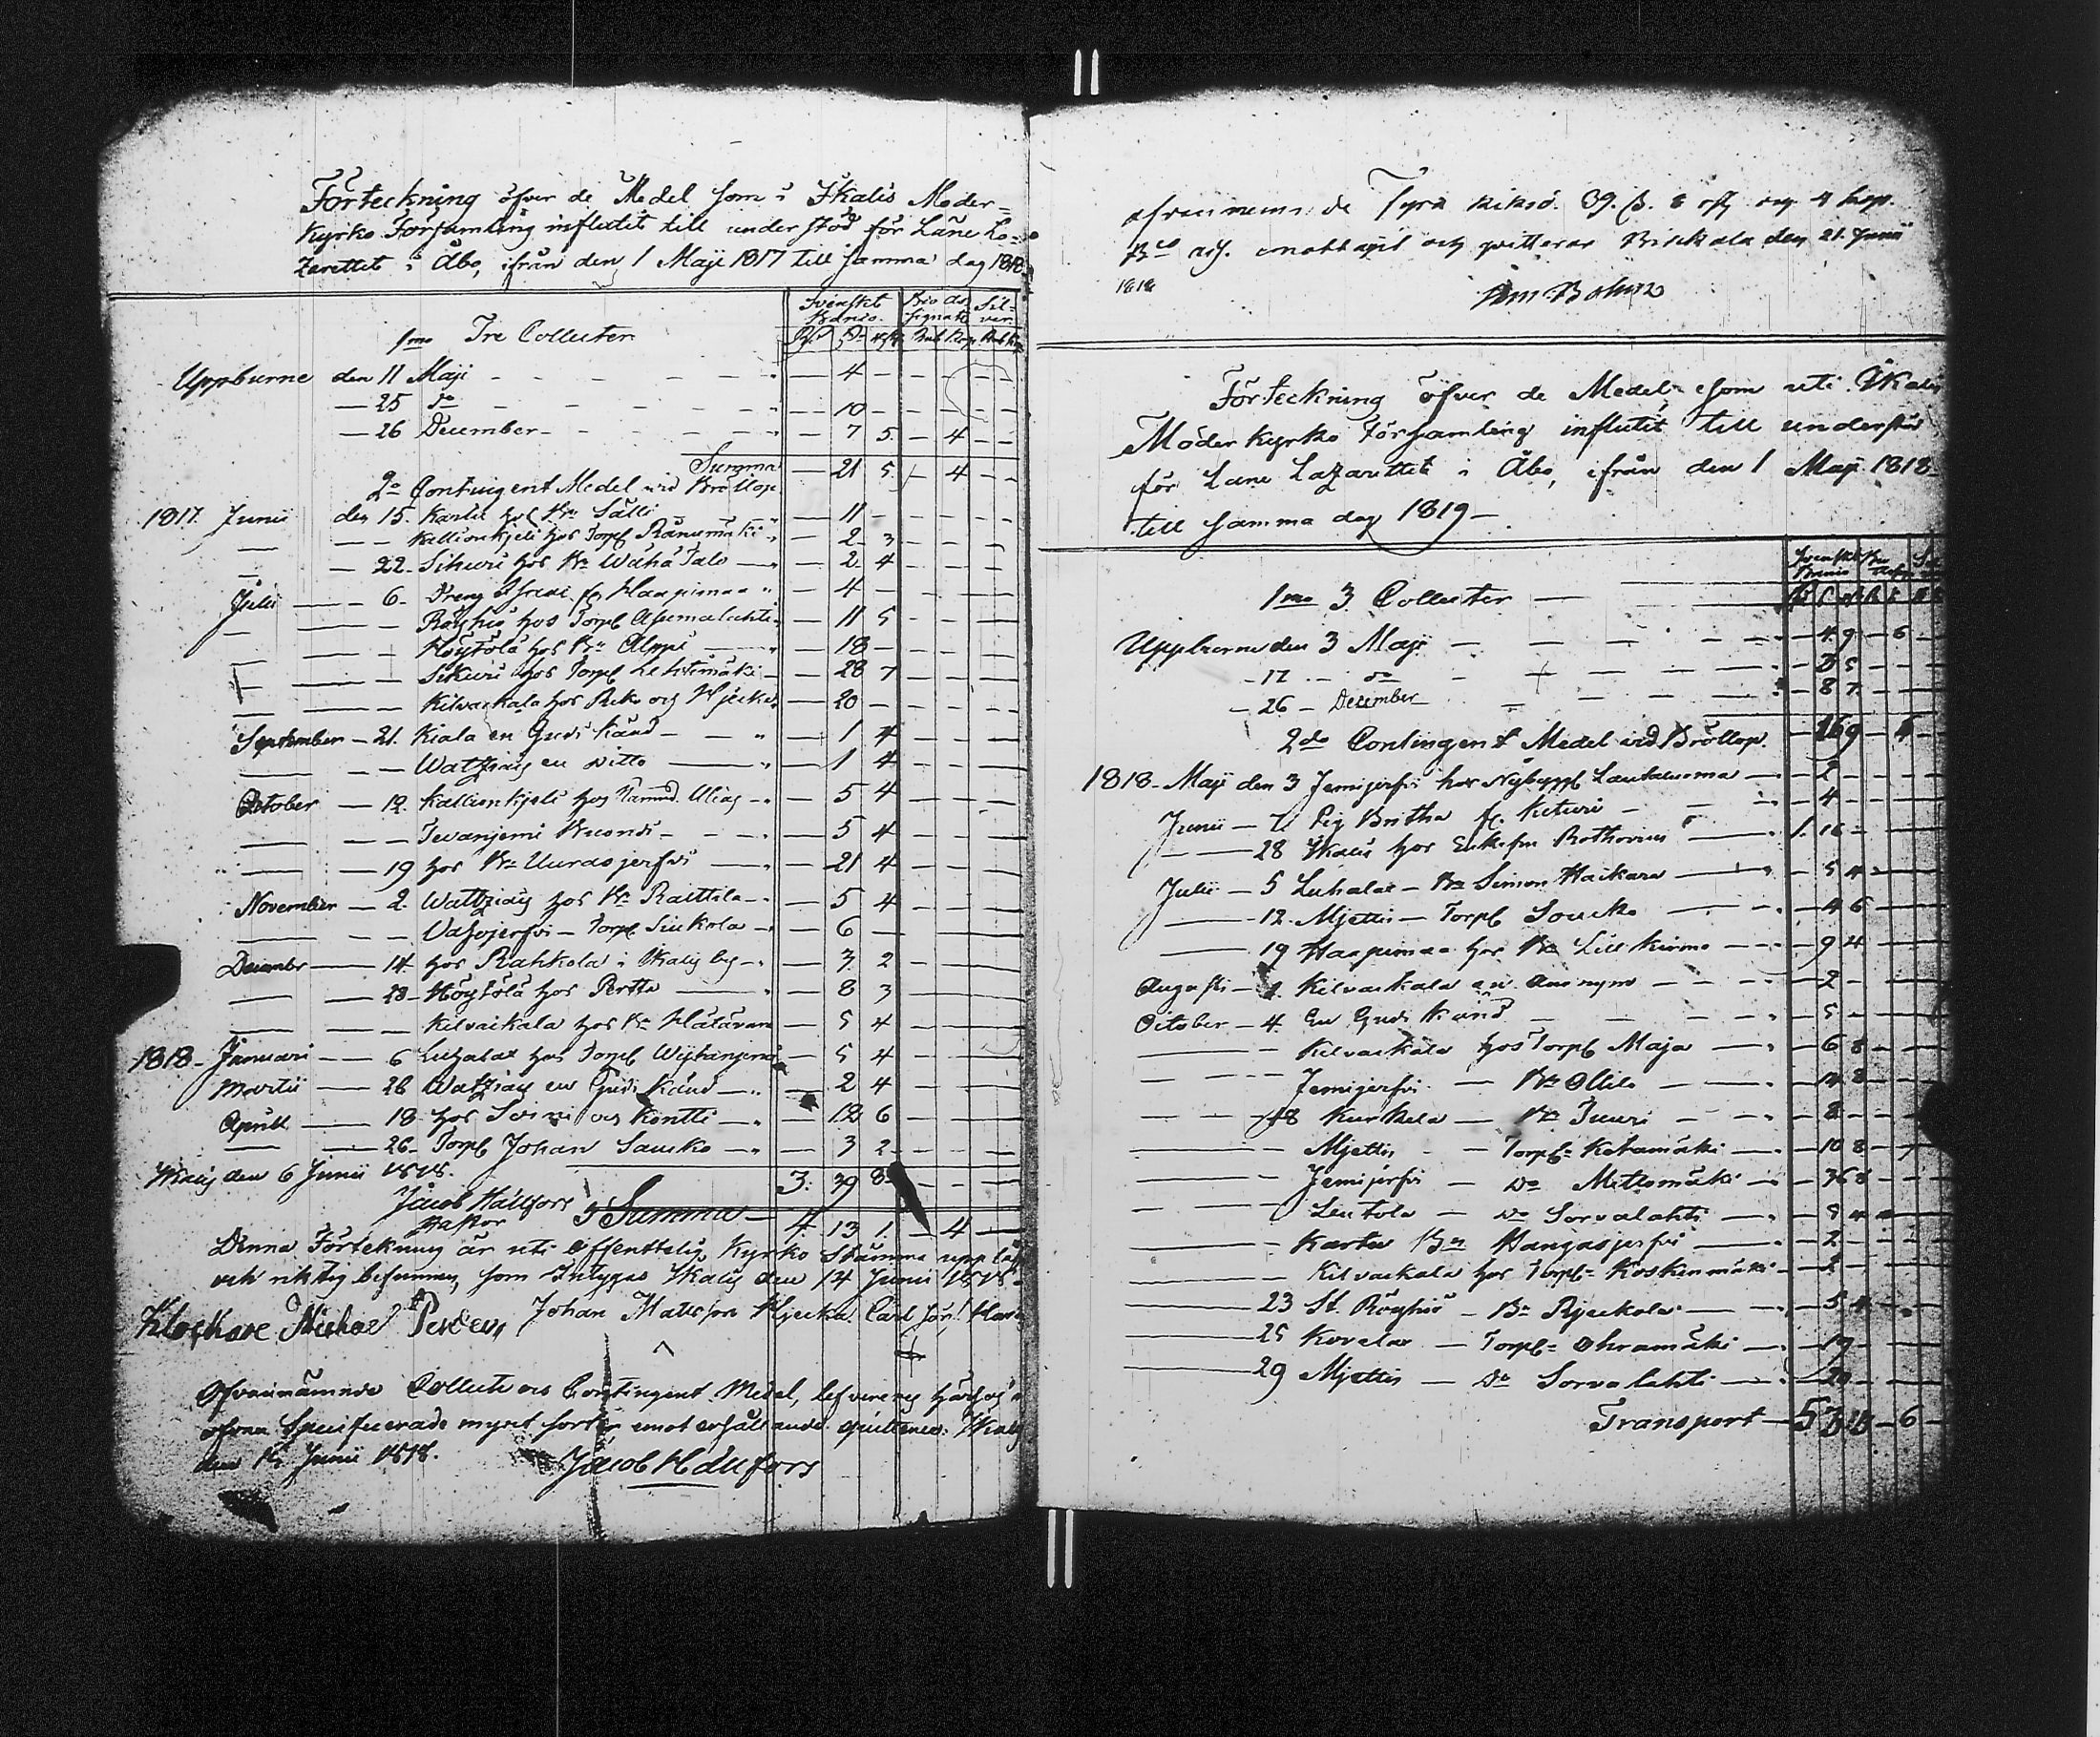 Förteckning öfver de Medel som i Ikalis Moder-
Kyrko Församling influtit till understöd för Läne La-
zarettet i Åbo, ifrån den 1 Maji 1817 till samma dag 1818
Svenskt Banco. Silver
1mo Tre Collecter
Uppburne den 11 Maji - - - 4 - - -
— 25 do - - - 10 - - -
— 26 December - - - 7 5 - 4 - -
Summa - 21 5 - 4 - -
2o Contingent Medel vid Bröllop
1817. Junii den 15. Kartu hos Bn Sälli - 11 -
— — Kallionkjeli hos Torp - 2 3
— 22 Sikuri hos Bn Wäha Talo - 2 4
Julii — 6 Dreng fr Haapimaa - 4 -
— — Röyhiö hos Torp - 11 5
— — Höytölä hos Bn Alppi - 18 -
— — Sikuri hos Torp Lehtimäki - 28 7
— — Kilvaskala hos och Hjecka - 20 -
September — 21. Kiala en Guds Känd - 1 4
— — Watziaig en ditto - 1 4
October — 12. Kallionkjeli hos Nämnd. Uliag - 5 4
— — Tevanjemi - 5 4
— 19 hos Bn Uurasjerfvi - 21 4
November — 2. Watziaig hos Bn Raittila - 5 4
— — Vahojerfvi - Torp Siukola - 6 -
December — 14 hos Rahkola i Ikalis by - 3 2
— 28 - Höytölä hos Pertta - 8 3
— — Kilvaikala hos Bn Hätävara - 5 4
1818 - Januari — 6 Luhalax hos Torp - 5 4
Martii — 26 Watziaig en Guds Känd - 2 4
Aprill — 18 hos Soini och Kontti - 12 6
— 26 - Torp Johan Saucko - 3 2
Ikalis den 6 Junii 1818. 3. 39 8
Jacob Hällfors
Pastor Summa - 4. 13 1. - 4 -
Denna Förtekning är uti offenttelig Kyrko Stämma uppläst
och riktig befunnen, som Intygas Ikalis den 14 Junii 1818
Klockare Michael Johan Mattsson Hjecka. Carl
Ofvannämnde Collect och Contingent Medel, lefvereras härhos i
ofvan Specificerade mynt sorter emot erhållande quittence. Ikalis
den Junii 1818. Jacob Hällfors
ofvannemnde Fyra Riksd. 39. ß. 8 och 4 kop.
Bco emottagit och qvitterar Birckala den 21. Junii
1818
Förteckning öfver de Medel som uti Ikalis
Moder Kyrko Församling influtit till understöd
för Läne Lazarettet i Åbo, ifrån den 1 Maji 1818
till samma dag 1819 -
1mo 3 Collecter —
Uppburne den 3 Maji - - - 4 9 - 6 -
- 17 - do - - 5 -
- 26 - December - - 8 7 -
2do Contingent Medel vid Bröllop. - 16 9 - 6 -
1818 - Maji den 3 Jemijerfvi hos Nybygg Lautaluoma - 2 -
Junii — 7 Pig Britha fr. Keturi - 4 -
— 28 Ikalis hos Enkefru Rothovius - 1. 16 -
Julii — 5 Luhalax - Bn Simon Haikara - 5 4
— 12. Mjettis - Torp Soucko - 4 6
— 19 Haapimaa hos Bn Lill Kirmo - 9 4
Augusti - Kilvaskala en Anonym - 2 -
October - 4. En Guds Känd - 5 -
— Kilvaskala hos Torp Maja - 6 8
— Jemijerfvi - Bn Ollila - 14 8
— 18 Kurkela - Bn Juuri - 8 -
— Mjettis - Torp Ketamäki - 10 8
— Jemijerfvi - do Mettomäki - 36 8
— Leutola - do Sorvalahti - 5 4
— Kartu Bn Kangasjerfvi - 2 -
— Kilvaskala hos Torp Koskenmäki - 2 -
— 23 St. Röyhiö - Bn Rjeckola - 5 4
— 25 Kovelax - Torp Ohramäki - 19 -
— 29 Mjettis - do Sorvalahti - 20 -
Transport - 5 - 6 -